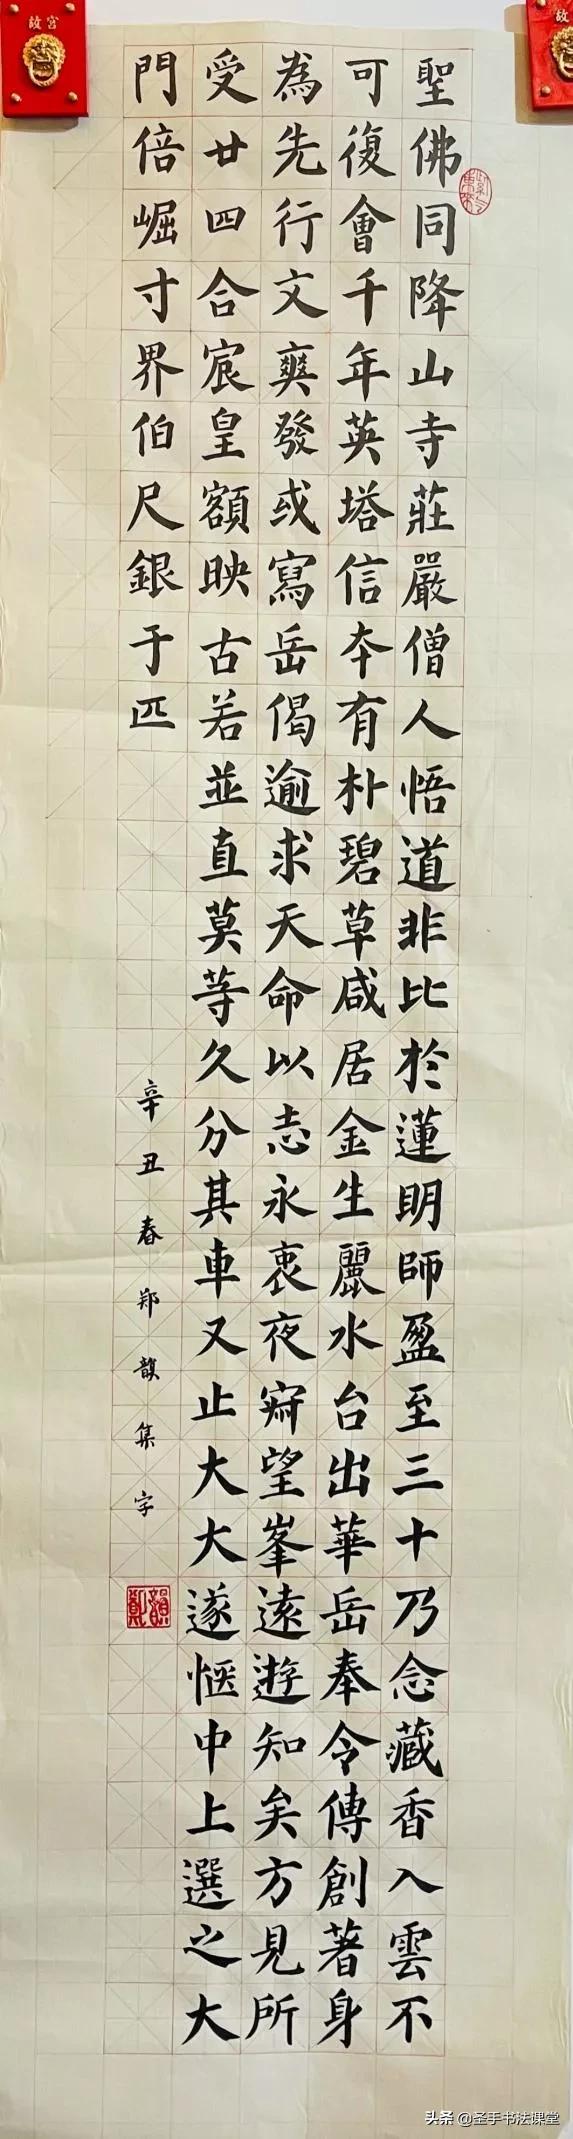 聖佛同降山寺莊嚴僧人悟道非比於蓮明師盈至三十乃念藏香入雲不
可復會千年英塔信本有朴碧草咸居金生麗水台出華岳奉令傳創著身
為先行文爽發或寫岳偈逾求天命以志永衷夜齊望峯遠遊知矣方見所
受廿四合宸皇額映古若並直莫等久分其車又止大大遂愜中上選之大
門倍崛寸界伯尺銀于匹
辛丑春郑馥集字
故宫
故
头条 @圣手书法课堂